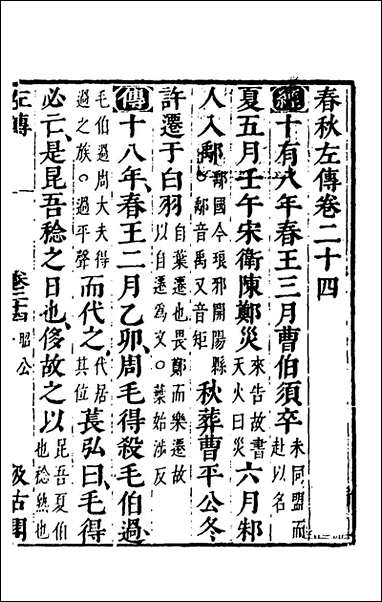 春秋左傳卷二十四
經十有八年春王三月曹伯須卒未同盟而赴以名
夏五月壬午宋衛陳鄭災來告故書天火曰災六月邾
人入鄅鄅國今琅邪開陽縣鄅音禹又音矩秋葬曹平公冬
許遷于白羽自葉遷也畏鄭而樂遷故以自遷爲文○葉始涉反
傳十八年春王二月乙卯周毛得殺毛伯過
毛伯過周大夫得過之族○過平聲而代之代居其位萇弘曰毛得
必亡是昆吾稔之日也侈故之以昆吾夏伯也稔熟也
左傳 卷二十四 昭公 汲古閣